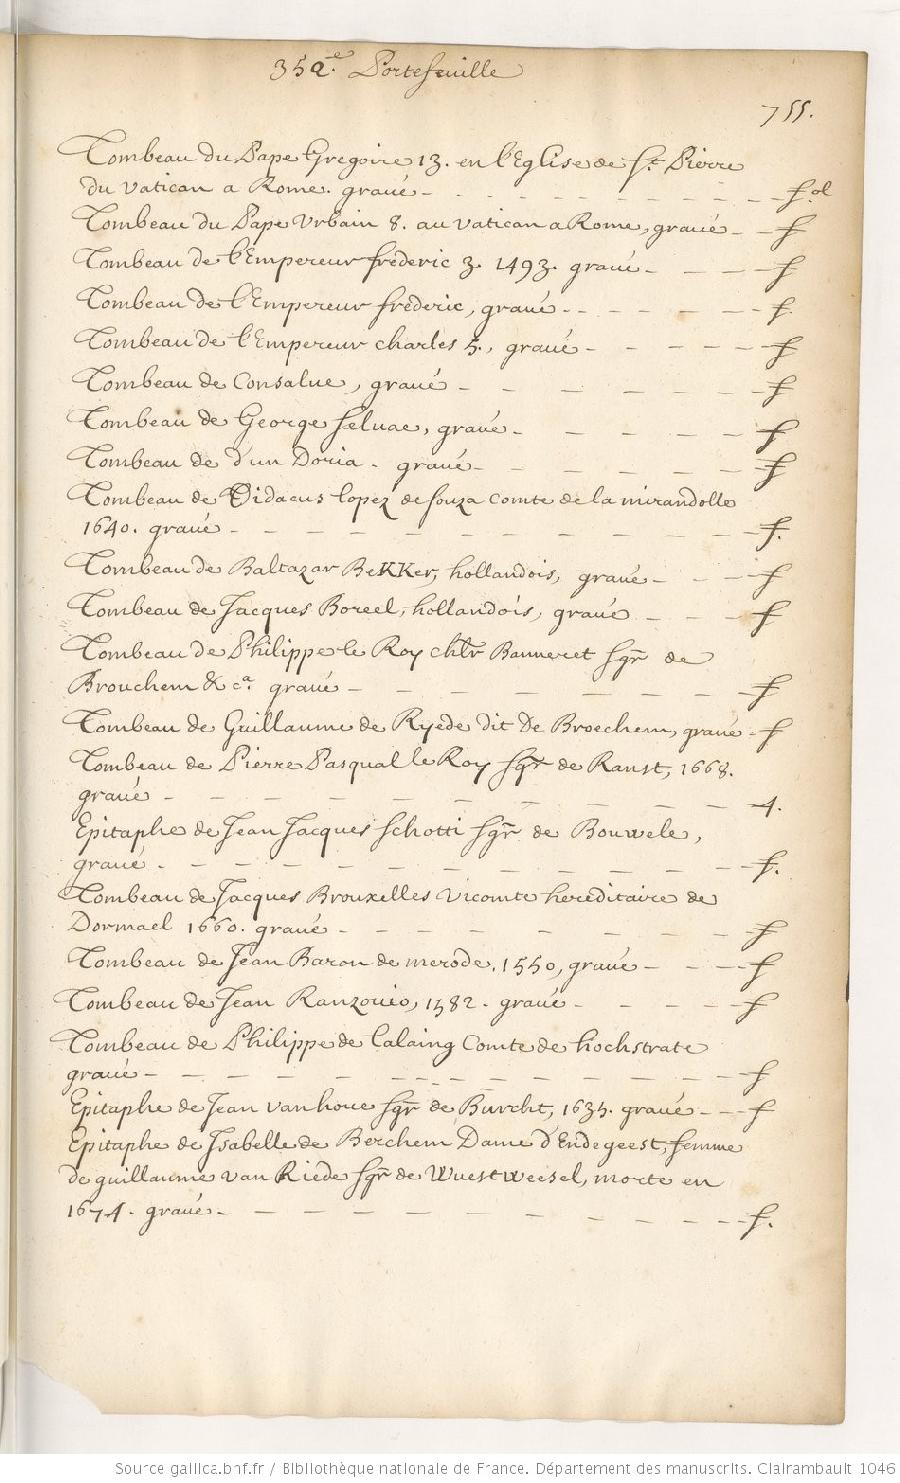 352.e Portefeuille
755.
Tombeau du Pape Gregoire 13. en l'Eglise de St. Pierre
du Vatican a Rome. gravé - - - - - - - - - - f.ol
Tombeau du Pape Urbain 8. au Vatican a Rome, gravé - - f
Tombeau de l'Empereur frederic 3. 1493. gravé - - - - f
Tombeau de l'Empereur frederic, gravé - - - - - - f
Tombeau de l'Empereur charles 5., gravé - - - - - f
Tombeau de Consalue, gravé - - - - - - f
Tombeau de George seluae, gravé - - - - - f
Tombeau de d'un Doria. gravé - - - - - - f
Tombeau de Didacus lopez de souza comte de la mirandolle
1640. gravé - - - - - - - - - - f.
Tombeau de Baltazar BeKKer, hollandois, gravé - - - f
Tombeau de Jacques Boreel, hollandois, gravé - - - f
Tombeau de Philippe le Roy chlr Banneret sgr de
Brouchem & ca. gravé - - - - - - - f
Tombeau de Guillaume de Ryede dit De Broechem, gravé - f
Tombeau de Pierre Pasqual le Roy sgr de Ranst, 1668.
gravé - - - - - - - - - - - 4.
Epitaphe de Jean Jacques schotti sgr de Bouwele,
gravé - - - - - - - - - - - f.
Tombeau de Jacques Brouxelles vicomte hereditaire de
Dormael 1660. gravé - - - - - - - f
Tombeau de Jean Baron de merode, 1550, gravé - - - - f
Tombeau de Jean Ranzovio, 1582. gravé - - - - - f
Tombeau de Philippe de lalaing Comte de hochstrate
gravé - - - - - - - - - - - - f
Epitaphe de Jean vanhoue sgr de Burcht, 1635. gravé - - - f
Epitaphe de Isabelle de Berchem Dame d'Endegeest, femme
de guillaume van Riede sgr de Wuestweesel, morte en
1674. gravé - - - - - - - - - - f.
Source gallica.bnf.fr / Bibliothèque nationale de France. Département des manuscrits. Clairambault 1046